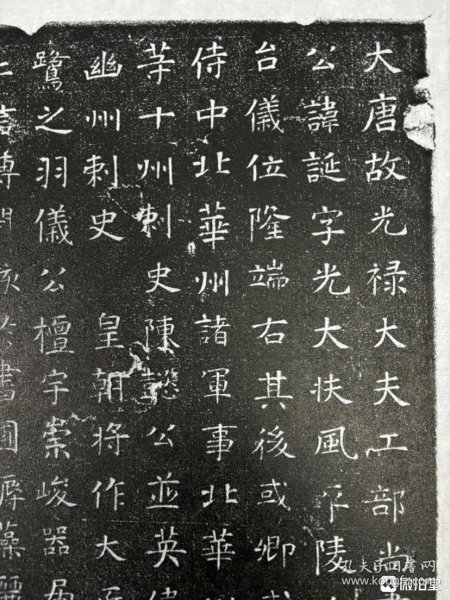 大唐故光禄大夫工部尚
公諱誕字光大扶風平陵
台儀位隆端右其後或卿或
侍中北華州諸軍事北華
等十州刺史陳懿公並英偉
幽州刺史 皇朝將作大
鷺之羽儀公檀宇崇峻器局
上言博聞該於書圃
孔夫子旧书网
www.kongfz.com
微拍堂